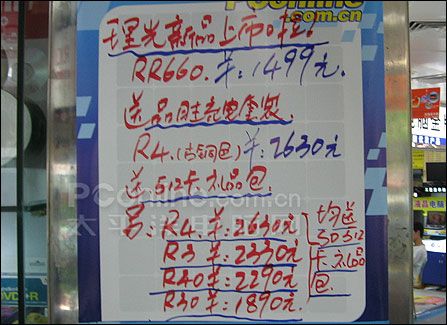 PConline
.com.cn
理光新品上市啦:
RR660. 羊:1499元.
送品胜充电套装
R4.(古铜色)羊:2630元
送512卡礼品包
PConline.com.cn
太平洋电脑网
另: R4. 羊:2630元
R3 羊:2330元
R20 羊:2290元
R30 羊:1890元.
均送
SD512
卡礼品
包.
液晶电脑